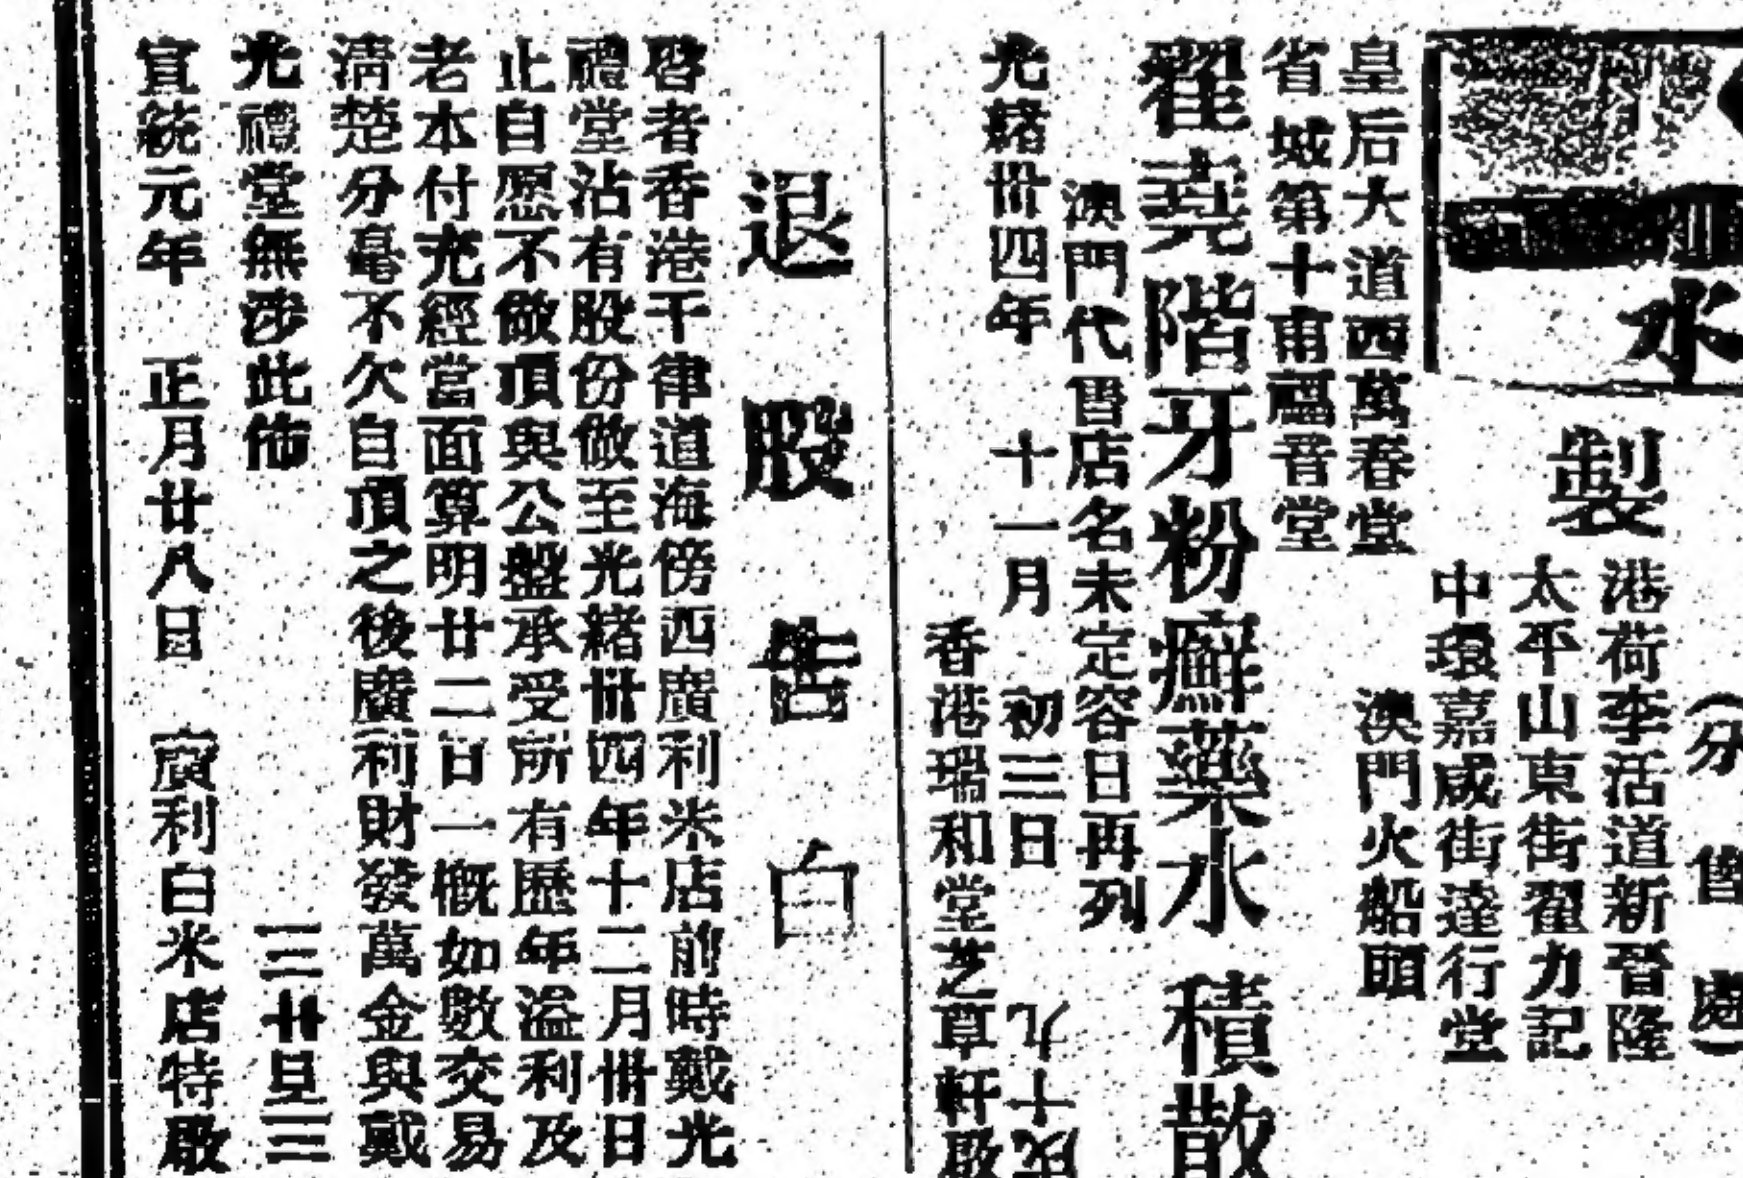 水
製
（分售處）
港荷李活道新晉隆
太平山東街翟力記
中環嘉咸街達行堂
澳門火船頭
皇后大道西萬春堂
省城第十甫福音堂
翟堯階牙粉癬藥水 積散
澳門代售店名未定容日再列
光緒卅四年 十一月 初三日
香港瑞和堂芝草軒啟
退股告白
啓者香港干律道海傍西廣利米店前時戴光
禮堂沾有股份做至光緒卅四年十二月卅日
止自愿不做頂與公盤承受所有歷年溢利及
老本付充經當面算明廿二日一概如數交易
清楚分毫不欠自頂之後廣利財發萬金與戴
光禮堂無涉此佈
宣統元年 正月廿八日 廣利白米店特啟